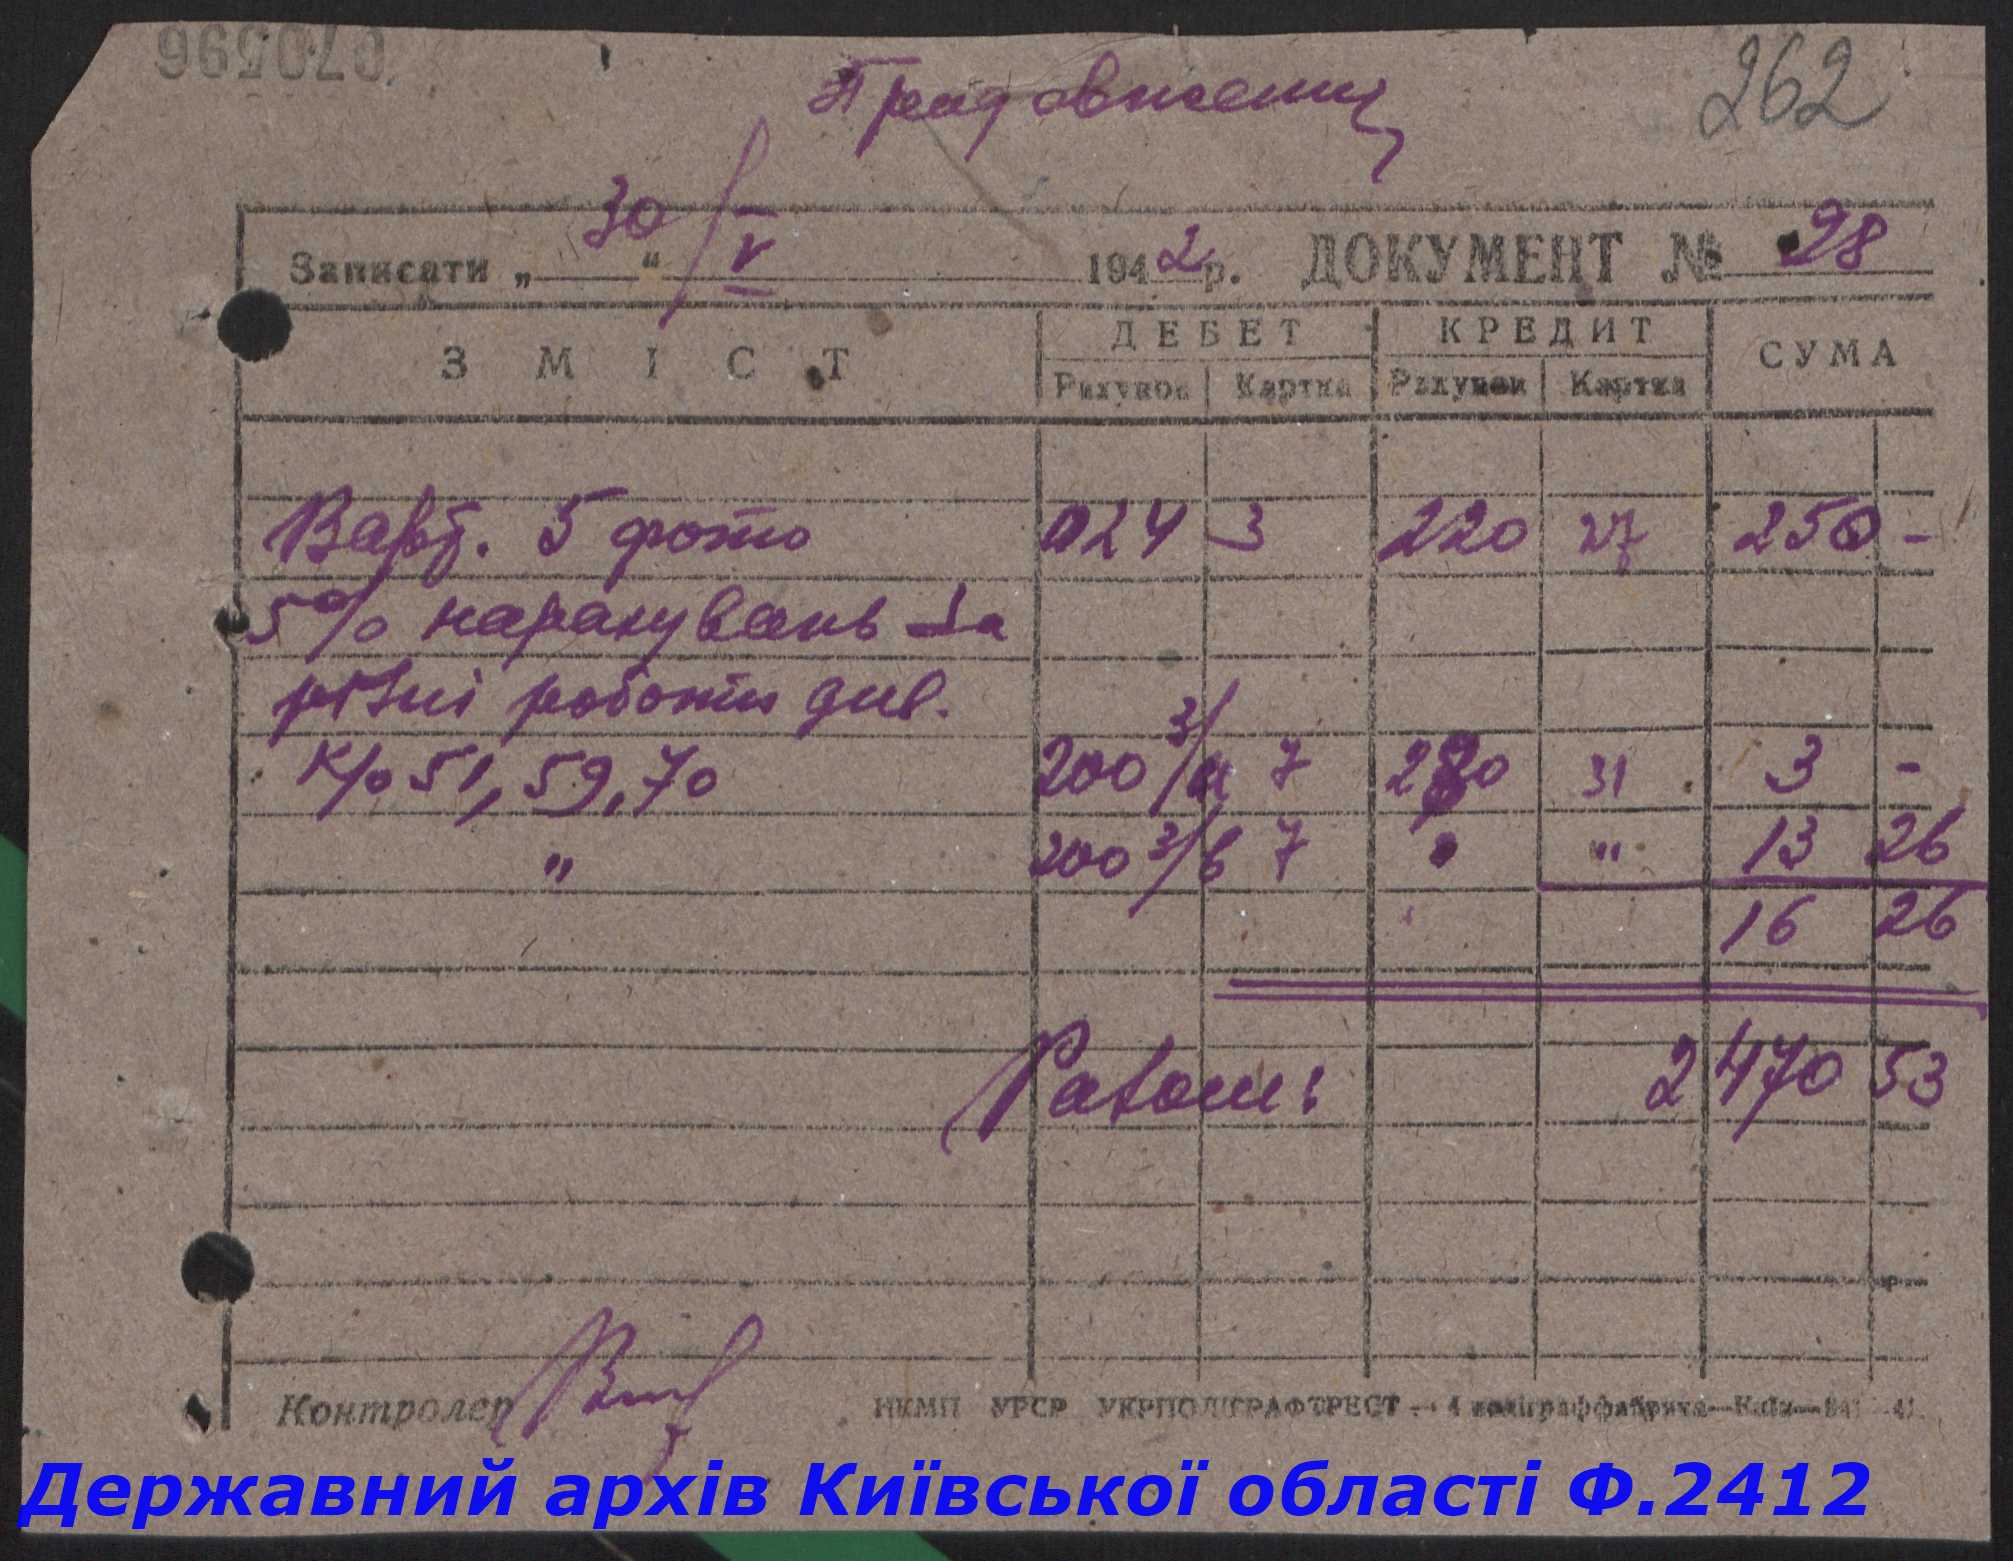 262
Записати „30“ / V 1942 р. ДОКУМЕНТ № 28
ЗМІСТ ДЕБЕТ КРЕДИТ СУМА
Рахунок Картка Рахунок Картка
Варт. 5 фото 024 3 220 27 250 -
5% нарахувань за
різні роботи див.
к/о 51, 59, 70 200 3/а 7 220 31 3 -
" 200 3/б 7 " 13 26
16 26
Разом: 2 470 53
Контролер
НКМП УРСР УКРПОЛІГРАФТРЕСТ — 4 поліграффабрика — Київ
Державний архів Київської області Ф.2412